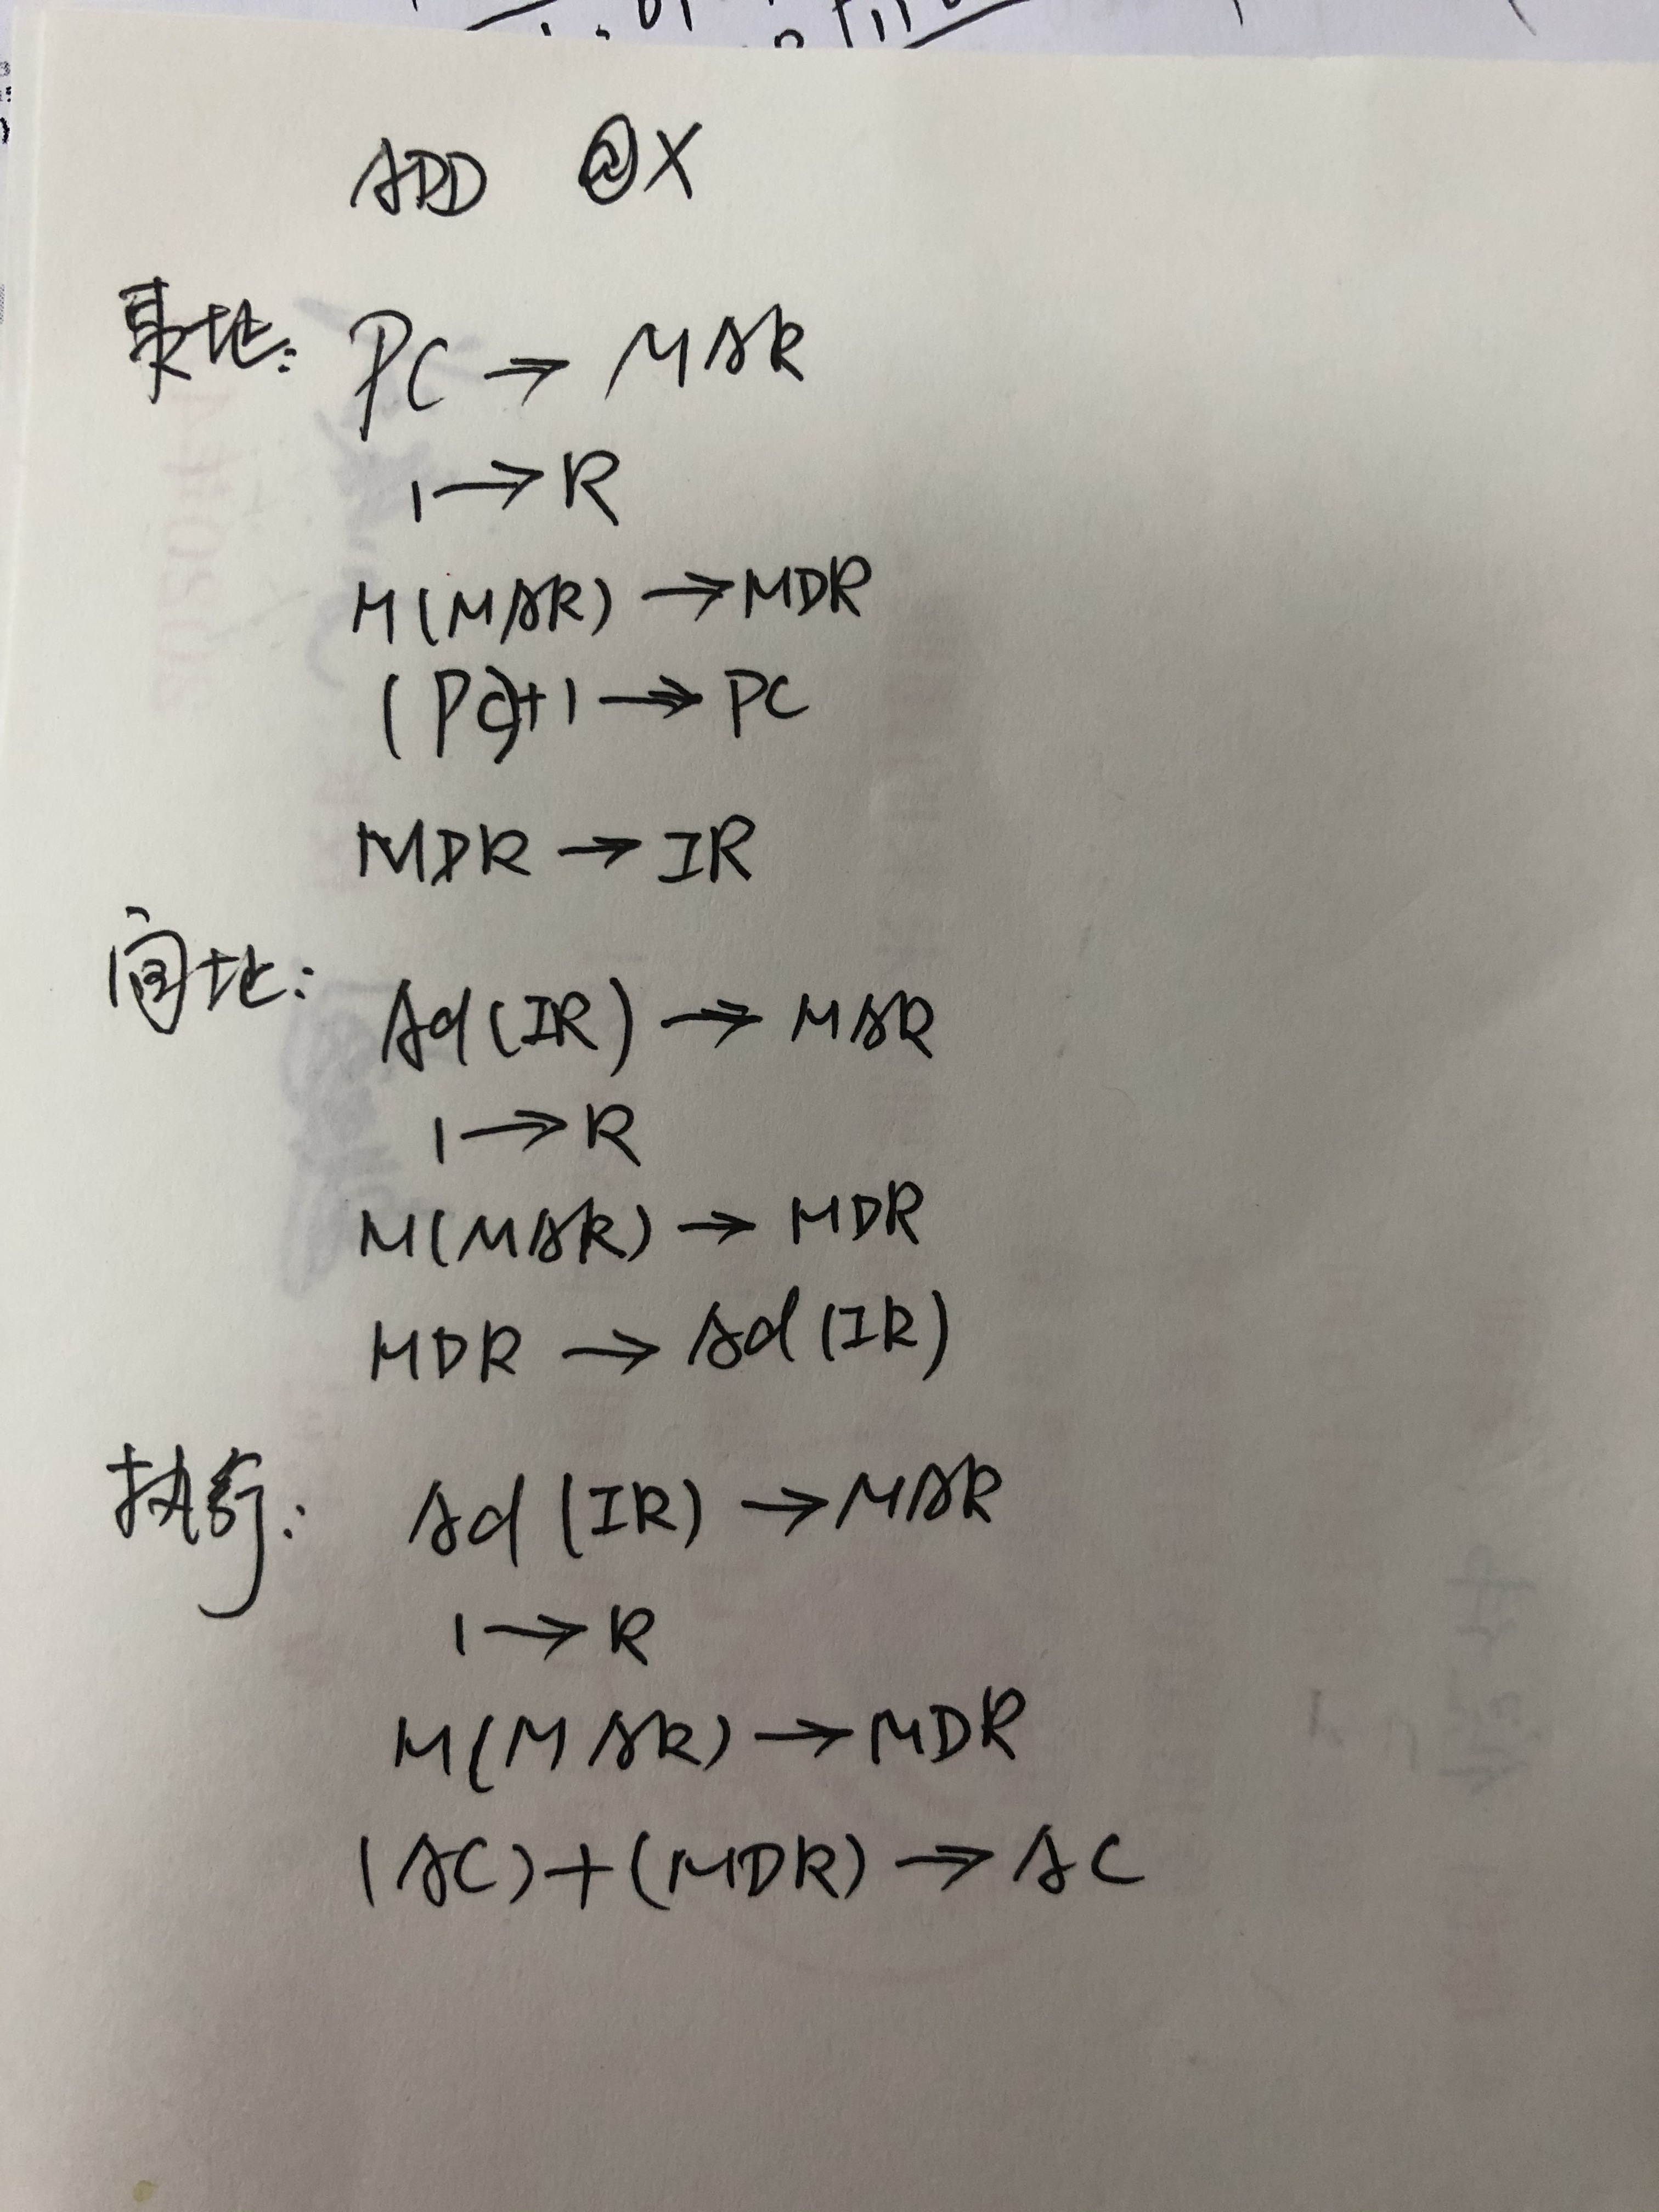 ADD @X
取址: PC → MAR
1 → R
M(MAR) → MDR
(PC)+1 → PC
MDR → IR
间址:
Ad(IR) → MAR
1 → R
M(MAR) → MDR
MDR → Ad(IR)
执行: Ad(IR) → MAR
1 → R
M(MAR) → MDR
(AC)+(MDR) → AC